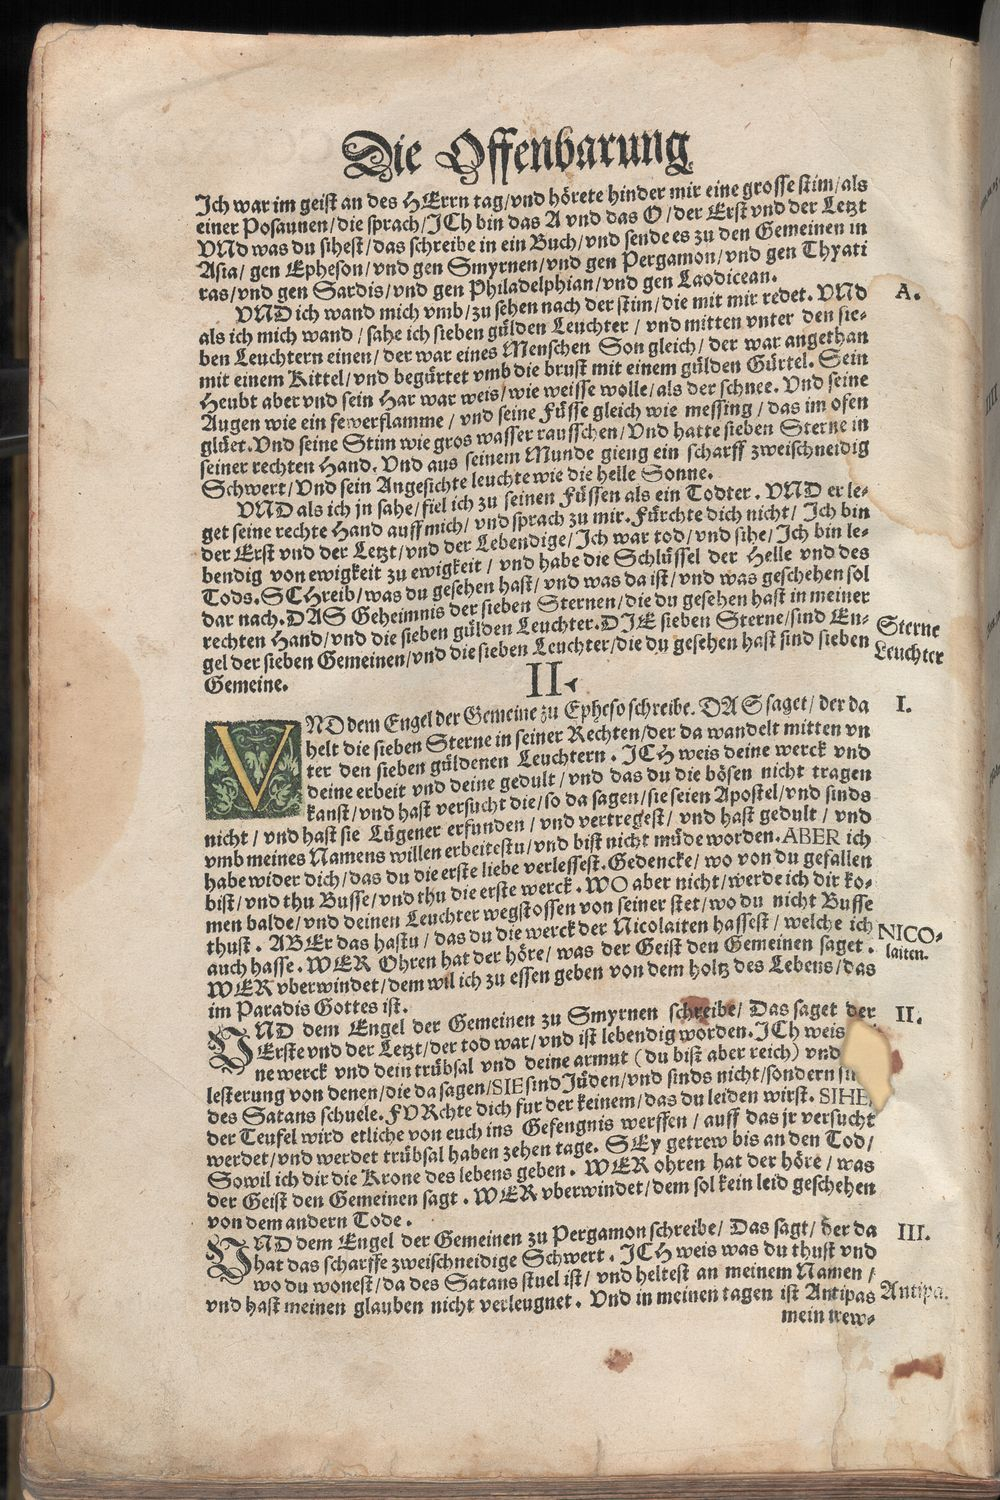 Die Offenbarung
Ich war im geist an des HErrn tag/vnd hörete hinder mir eine grosse stim/als
einer Posaunen/die sprach/ICh bin das A vnd das O/der Erst vnd der Letzt
VNd was du sihest/das schreibe in ein Buch/vnd sende es zu den Gemeinen in
Asia/gen Epheson/vnd gen Smyrnen/vnd gen Pergamon/vnd gen Thyati
ras/vnd gen Sardis/vnd gen Philadelphian/vnd gen Laodicean.
VND ich wand mich vmb/zu sehen nach der stim/die mit mir redet. VND
A.
als ich mich wand/sahe ich sieben gülden Leuchter/vnd mitten vnter den sie-
ben Leuchtern einen/der war eines Menschen Son gleich/der war angethan
mit einem Kittel/vnd begürtet vmb die brust mit einem gülden Gürtel. Sein
Heubt aber vnd sein Har war weis/wie weisse wolle/als der schnee. Vnd seine
Augen wie ein fewerflamme/vnd seine Füsse gleich wie messing/das im ofen
glüet. Vnd seine Stim wie gros wasser rausschen/Vnd hatte sieben Sterne in
seiner rechten Hand. Vnd aus seinem Munde gieng ein scharff zweischneidig
Schwert/Vnd sein Angesichte leuchte wie die helle Sonne.
VND als ich jn sahe/fiel ich zu seinen Füssen als ein Todter. VND er le-
get seine rechte Hand auff mich/vnd sprach zu mir. Fürchte dich nicht/Ich bin
der Erst vnd der Letzt/vnd der Lebendige/Ich war tod/vnd sihe/Ich bin le-
bendig von ewigkeit zu ewigkeit/vnd habe die Schlüssel der Helle vnd des
Tods. SChreib/was du gesehen hast/vnd was da ist/vnd was geschehen sol
dar nach. DAS Geheimnis der sieben Sternen/die du gesehen hast in meiner
rechten Hand/vnd die sieben gülden Leuchter. DIE sieben Sterne/sind En-
Sterne
gel der sieben Gemeinen/vnd die sieben Leuchter/die du gesehen hast sind sieben
Leuchter
Gemeine.
II.
VND dem Engel der Gemeine zu Epheso schreibe. DAS saget/der da
I.
helt die sieben Sterne in seiner Rechten/der da wandelt mitten vn
ter den sieben güldenen Leuchtern. ICH weis deine werck vnd
deine erbeit vnd deine gedult/vnd das du die bösen nicht tragen
kanst/vnd hast versucht die/so da sagen/sie seien Apostel/vnd sinds
nicht/vnd hast sie Lügener erfunden/vnd vertregest/vnd hast gedult/vnd
vmb meines Namens willen erbeitestu/vnd bist nicht müde worden. ABER ich
habe wider dich/das du die erste liebe verlessest. Gedencke/wo von du gefallen
bist/vnd thu Busse/vnd thu die erste werck. WO aber nicht/werde ich dir ko-
men balde/vnd deinen Leuchter wegstossen von seiner stet/wo du nicht Busse
thust. ABEr das hastu/das du die werck der Nicolaiten hassest/welche ich
NICO-
auch hasse. WER Ohren hat der höre/was der Geist den Gemeinen saget.
laiten.
WER vberwindet/dem wil ich zu essen geben von dem holtz des Lebens/das
im Paradis Gottes ist.
VND dem Engel der Gemeinen zu Smyrnen schreibe/Das saget der
II.
Erste vnd der Letzt/der tod war/vnd ist lebendig worden. ICH weis
ne werck vnd dein trübsal vnd deine armut (du bist aber reich) vnd
lesterung von denen/die da sagen/SIE sind Jüden/vnd sinds nicht/sondern
des Satans schuele. FVRchte dich fur der keinem/das du leiden wirst. SIHE
der Teufel wird etliche von euch ins Gefengnis werffen/auff das jr versucht
werdet/vnd werdet trübsal haben zehen tage. SEy getrew bis an den Tod/
So wil ich dir die Krone des lebens geben. WER ohren hat der höre/was
der Geist den Gemeinen sagt. WER vberwindet/dem sol kein leid geschehen
von dem andern Tode.
VND dem Engel der Gemeinen zu Pergamon schreibe/Das sagt/der da
III.
hat das scharffe zweischneidige Schwert. ICH weis was du thust vnd
wo du wonest/da des Satans stuel ist/vnd heltest an meinem Namen/
vnd hast meinen glauben nicht verleugnet. Vnd in meinen tagen ist Antipas
Antipa.
mein trew-